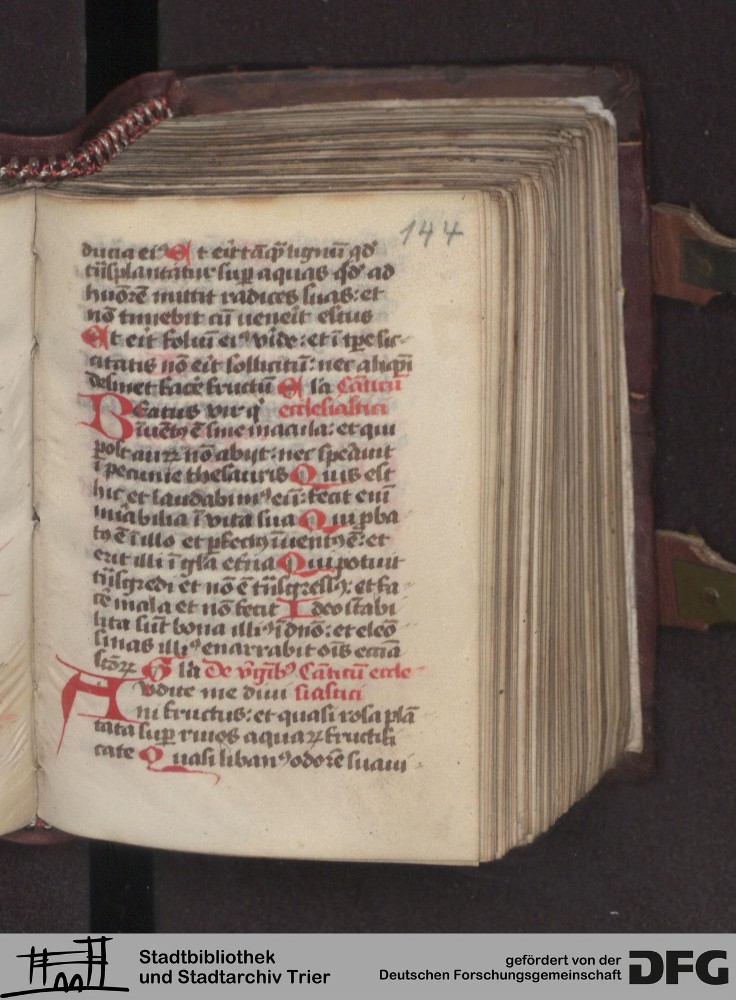 144
ducia ei⁹ Et erit tāq̄ lignū qd'
trāsplantātur sup aquas qd' ad
huōrē mittit radices suas: et
nō timebit cū uenerit estus
Et erit foliū ei⁹ viride: et ī tpe sic
citatis nō erit sollicitū: nec aliqn̄
desinet facē fructū Gla Cāticū
Beatus vir q' ecclesiastici
īuēt⁹ ē sine macula: et qui
post aurꝝ nō abijt: nec sperauit
ī pecunie thesauris Quis est
hic et laudabim⁹ eū: fecit enī
mirabilia ī vita sua Qui pba
t⁹ ē ī illo et pfect⁹ īuent⁹ ē: et
erit illi ī gl'a etrna Qui potuit
trāsgredi et nō ē trāsgress⁹: et fa
cē mala et nō fecit Ideo stabi
lita sūt bona illi⁹ ī dnō: et eleō
sinas illi⁹ enarrabit oīs ecc'ia
sctōꝝ Gla De v'gib⁹ Cāticū eccle
Audite me diui siastici
ni fructus: et quasi rosa plā
tata sup riuos aquaꝝ fructifi
cate Quasi liban⁹ odorē suaui
Stadtbibliothek
und Stadtarchiv Trier
gefördert von der
Deutschen Forschungsgemeinschaft
DFG